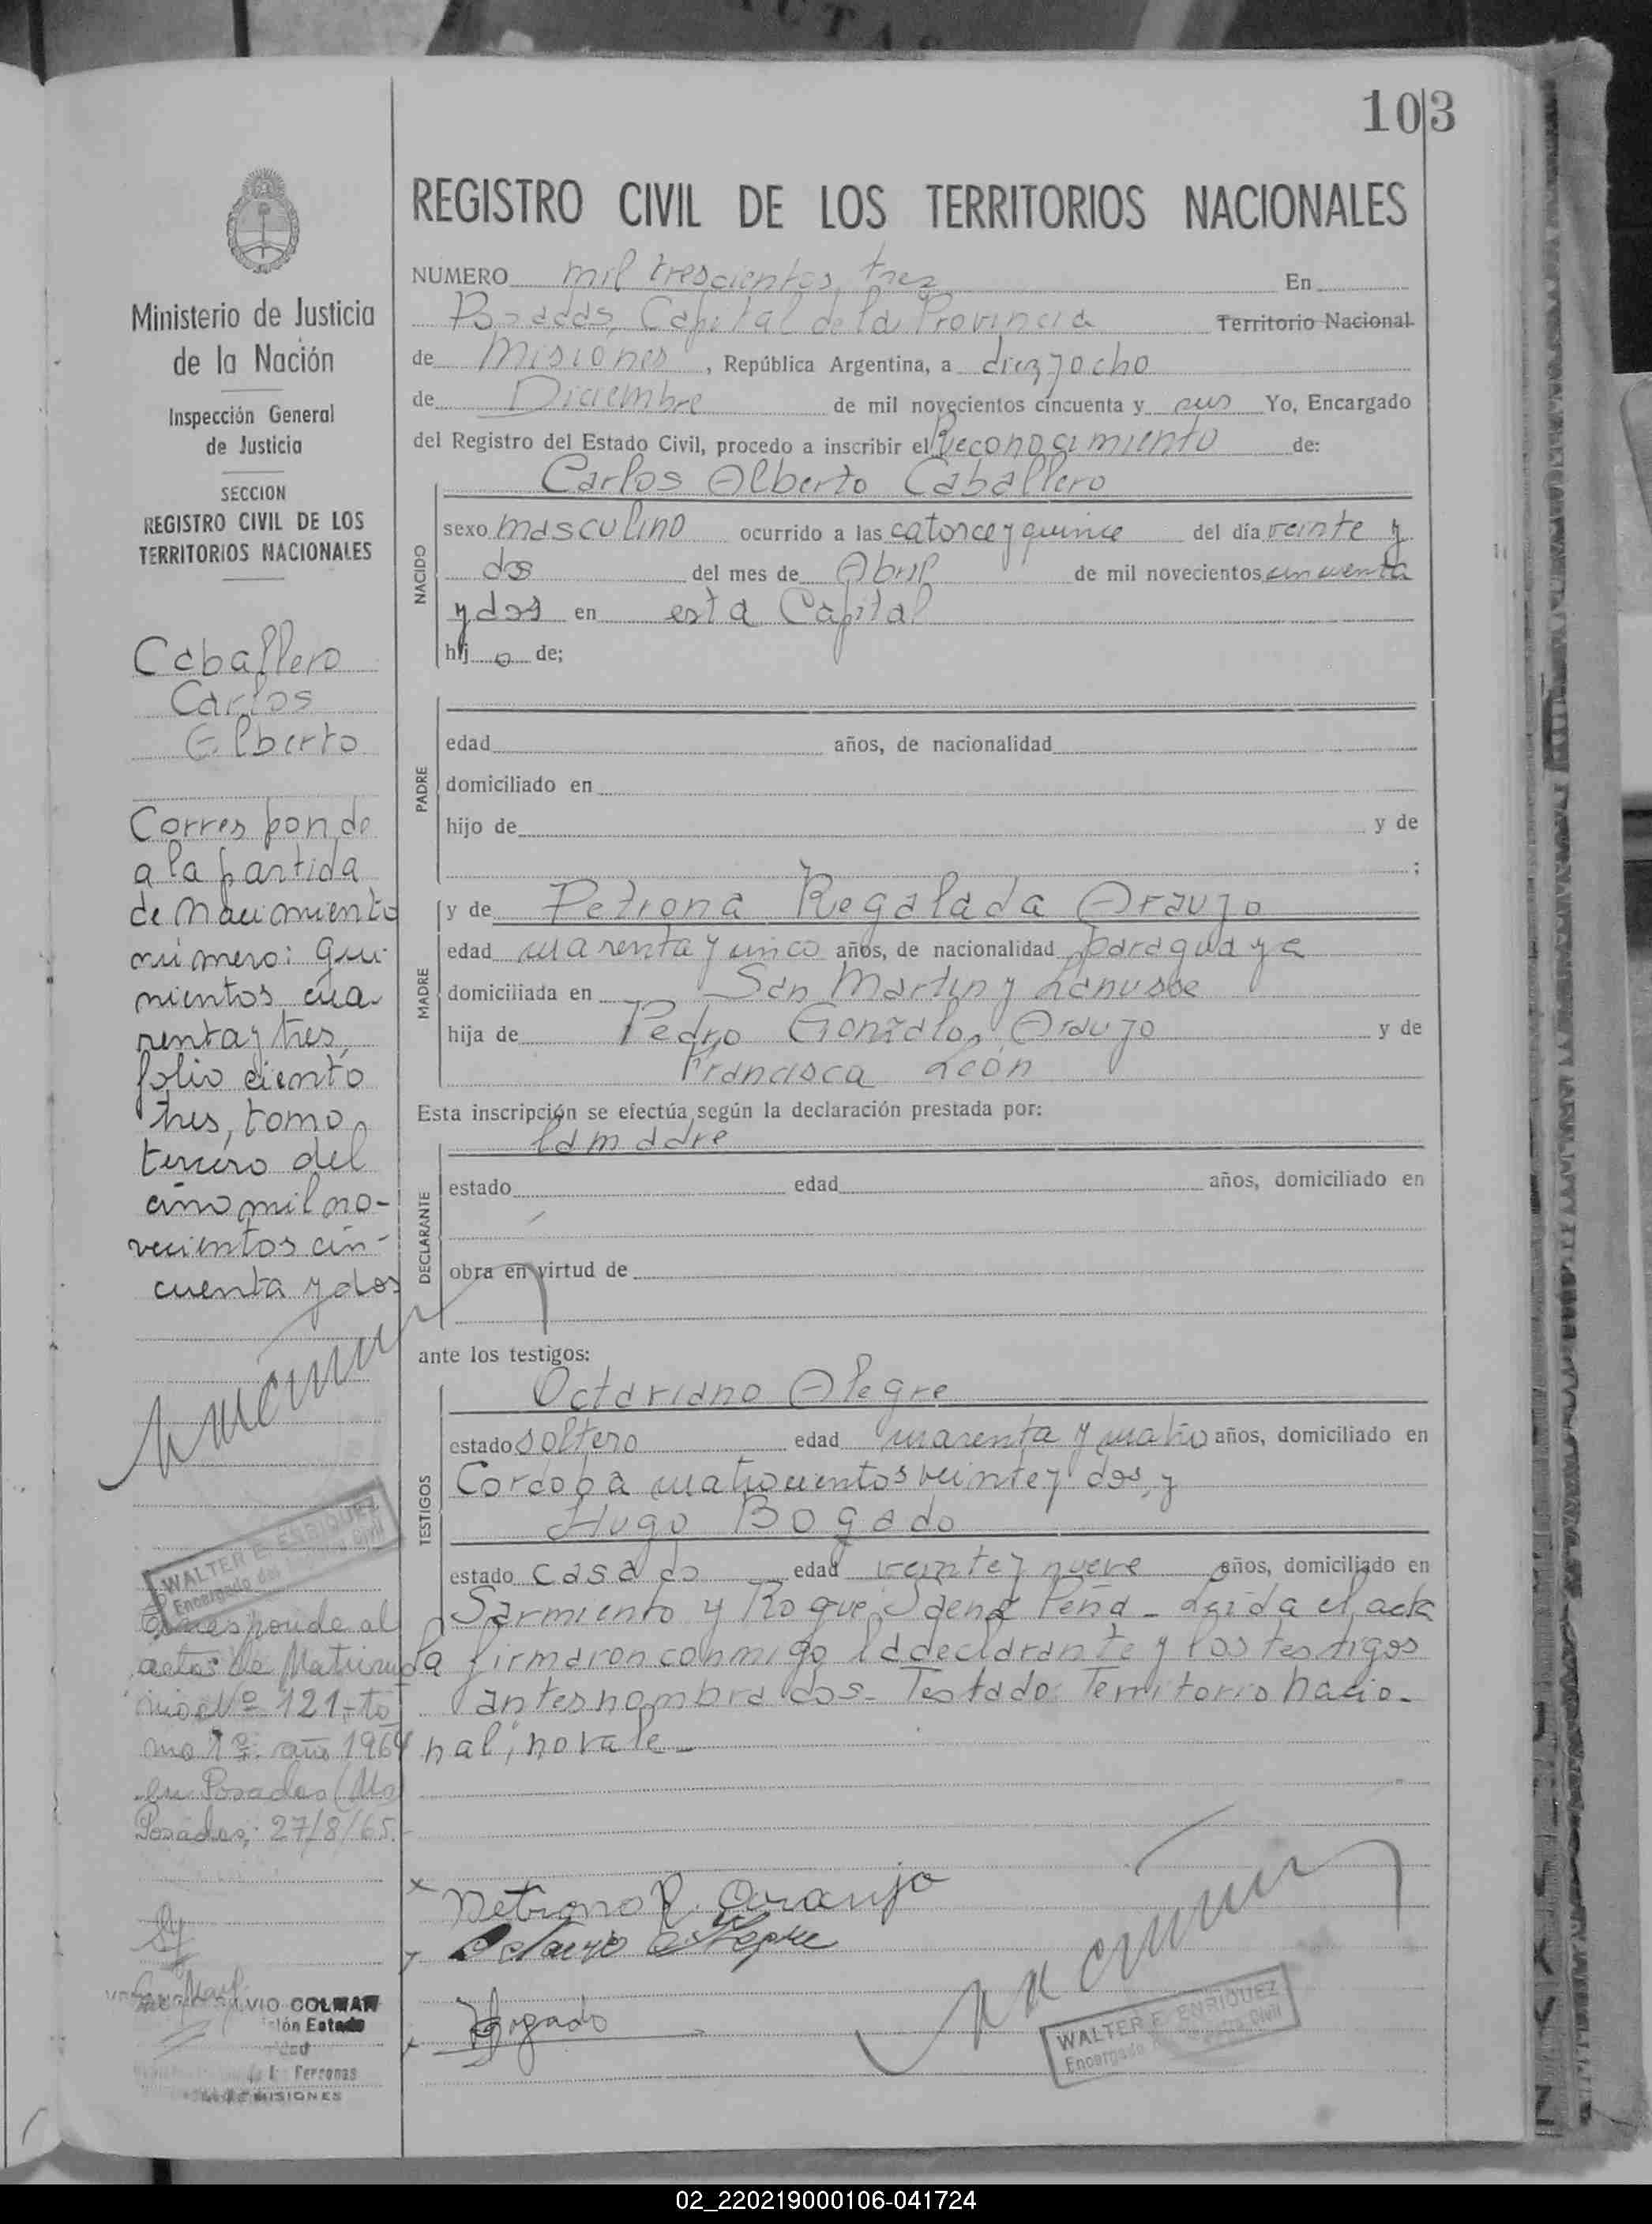 103
REGISTRO CIVIL DE LOS TERRITORIOS NACIONALES
Ministerio de Justicia
de la Nación
Inspección General
de Justicia
SECCION
REGISTRO CIVIL DE LOS
TERRITORIOS NACIONALES
Caballero
Carlos
Alberto
Corresponde
a la partida
de nacimiento
número: qui-
nientos cua-
renta y tres,
folio ciento
tres, tomo
tercero del
año mil no-
vecientos cin-
cuenta y dos
WALTER E. ENRIQUEZ
Encargado del Registro Civil
Corresponde al
acta de Matrimo
nio Nº 121, to
mo 1º año 1964
en Posadas (Ms
Posadas, 27/8/65.
SILVIO COLMAN
Personas
MISIONES
NUMERO mil trescientos tres En
Posadas, Capital de la Provincia Territorio Nacional
de Misiones, República Argentina, a diez y ocho
de Diciembre de mil novecientos cincuenta y seis Yo, Encargado
del Registro del Estado Civil, procedo a inscribir el Reconocimiento de:
Carlos Alberto Caballero
NACIDO
sexo masculino ocurrido a las catorce y quince del día veinte y
dos del mes de Abril de mil novecientos cincuenta
y dos en esta Capital
hijo de;
PADRE
edad años, de nacionalidad
domiciliado en
hijo de y de
;
MADRE
y de Petrona Regalada Araujo
edad cuarenta y cinco años, de nacionalidad paraguaya
domiciliada en San Martin y Lanusse
hija de Pedro Gonzalo Araujo y de
Francisca León
Esta inscripción se efectúa según la declaración prestada por:
la madre
DECLARANTE
estado edad años, domiciliado en
obra en virtud de
ante los testigos:
TESTIGOS
Octaviano Alegre
estado soltero edad cuarenta y cuatro años, domiciliado en
Cordoba cuatrocientos veinte y dos, y
Hugo Bogado
estado casado edad veinte y nueve años, domiciliado en
Sarmiento y Roque Saenz Peña - Leida el acta
la firmaron conmigo la declarante y los testigos
antes nombrados - Testado: Territorio Nacio-
nal", no vale -
Petrona R. Araujo
Octavio Alegre
HBogado
WALTER E. ENRIQUEZ
Encargado Registro Civil
02_220219000106-041724